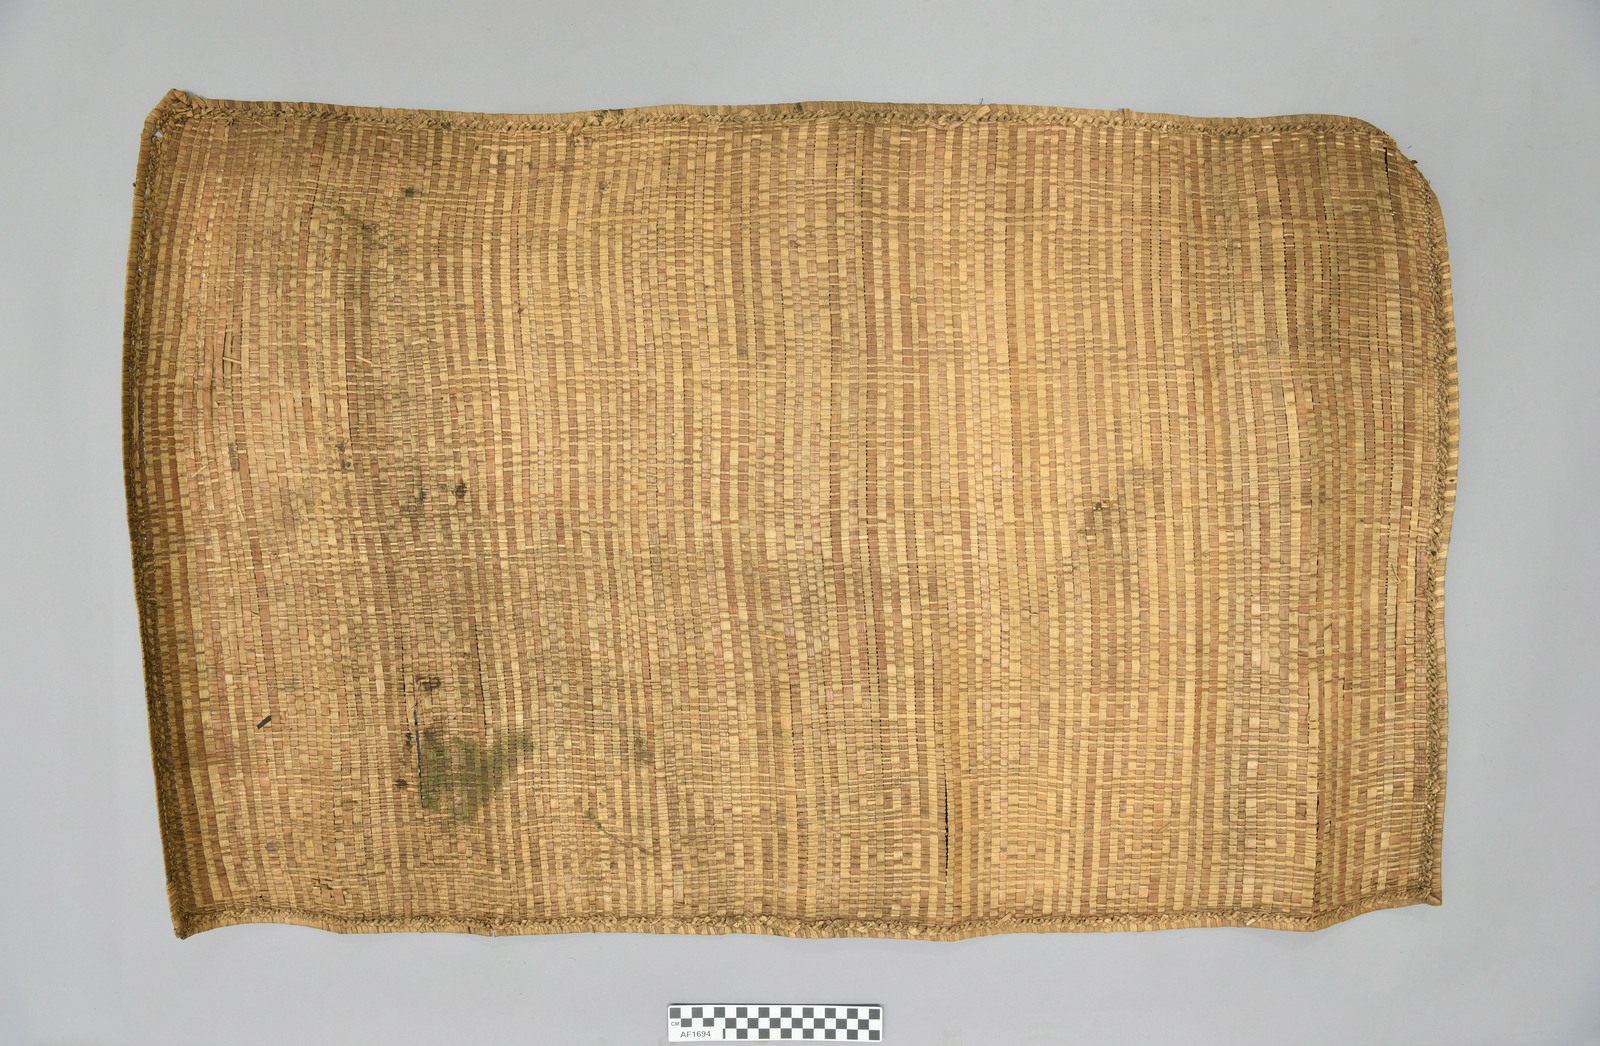 CM
AF1694